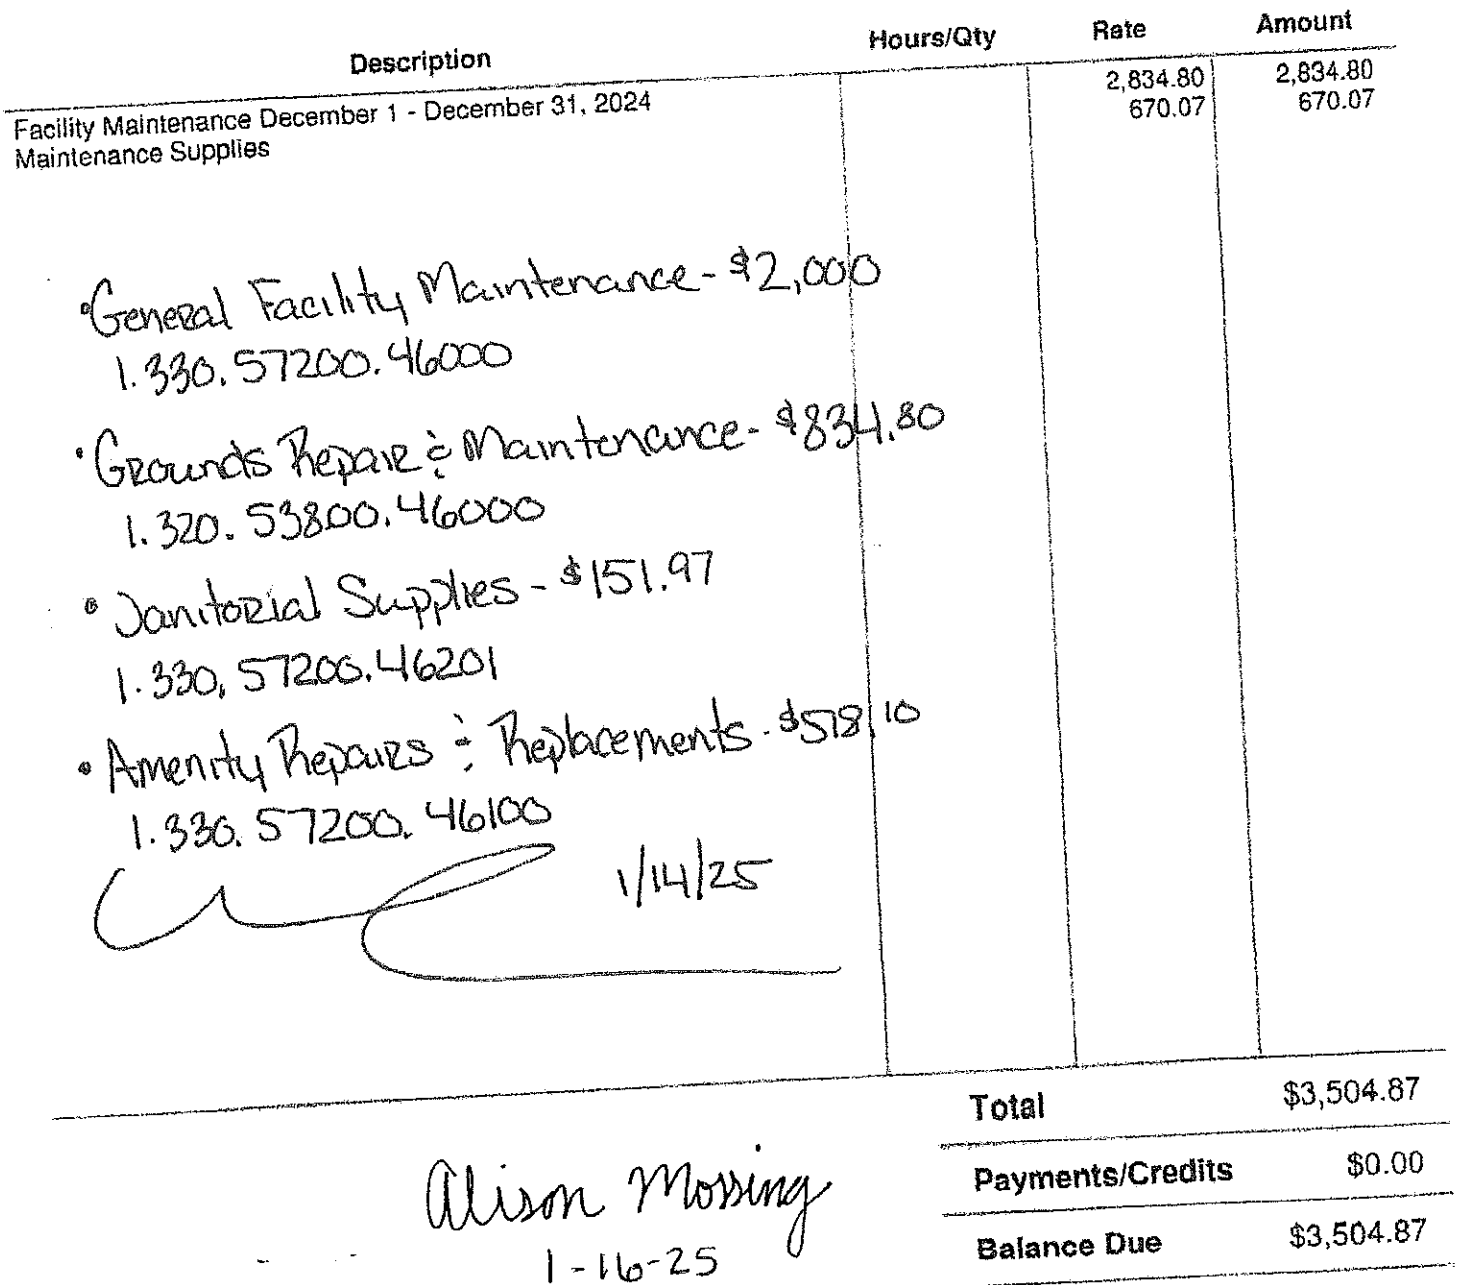 Description Hours/Qty Rate Amount
Facility Maintenance December 1 - December 31, 2024 2,834.80 2,834.80
Maintenance Supplies 670.07 670.07
•General Facility Maintenance - $2,000
1.330.57200.46000
•Grounds Repair & Maintenance - $834.80
1.320.53800.46000
•Janitorial Supplies - $151.97
1.330.57200.46201
•Amenity Repairs & Replacements - $518.10
1.330.57200.46100
1/14/25
Total $3,504.87
Payments/Credits $0.00
Balance Due $3,504.87
Alison Mossing
1-16-25